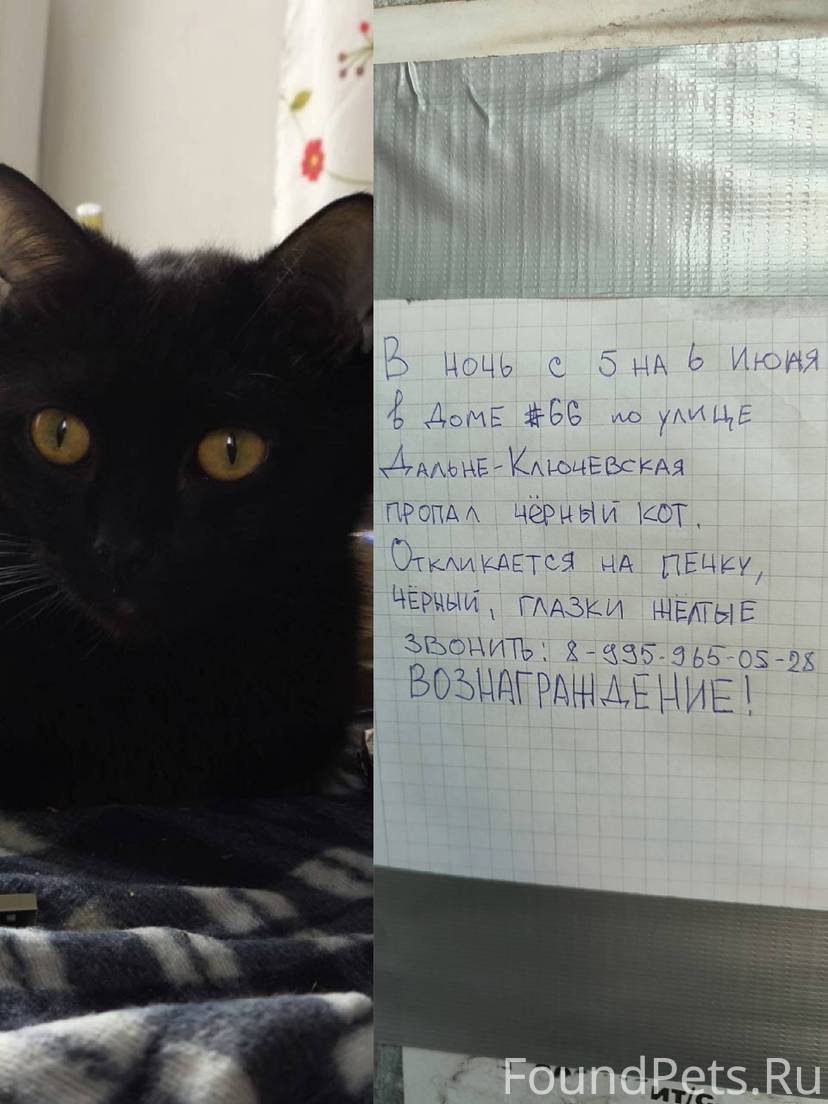 В ночь с 5 на 6 июня
в доме #66 по улице
Дальне-Ключевская
пропал чёрный кот.
Откликается на Печку,
чёрный, глазки жёлтые
звонить: 8-995-965-05-28
ВОЗНАГРАЖДЕНИЕ!
FoundPets.Ru